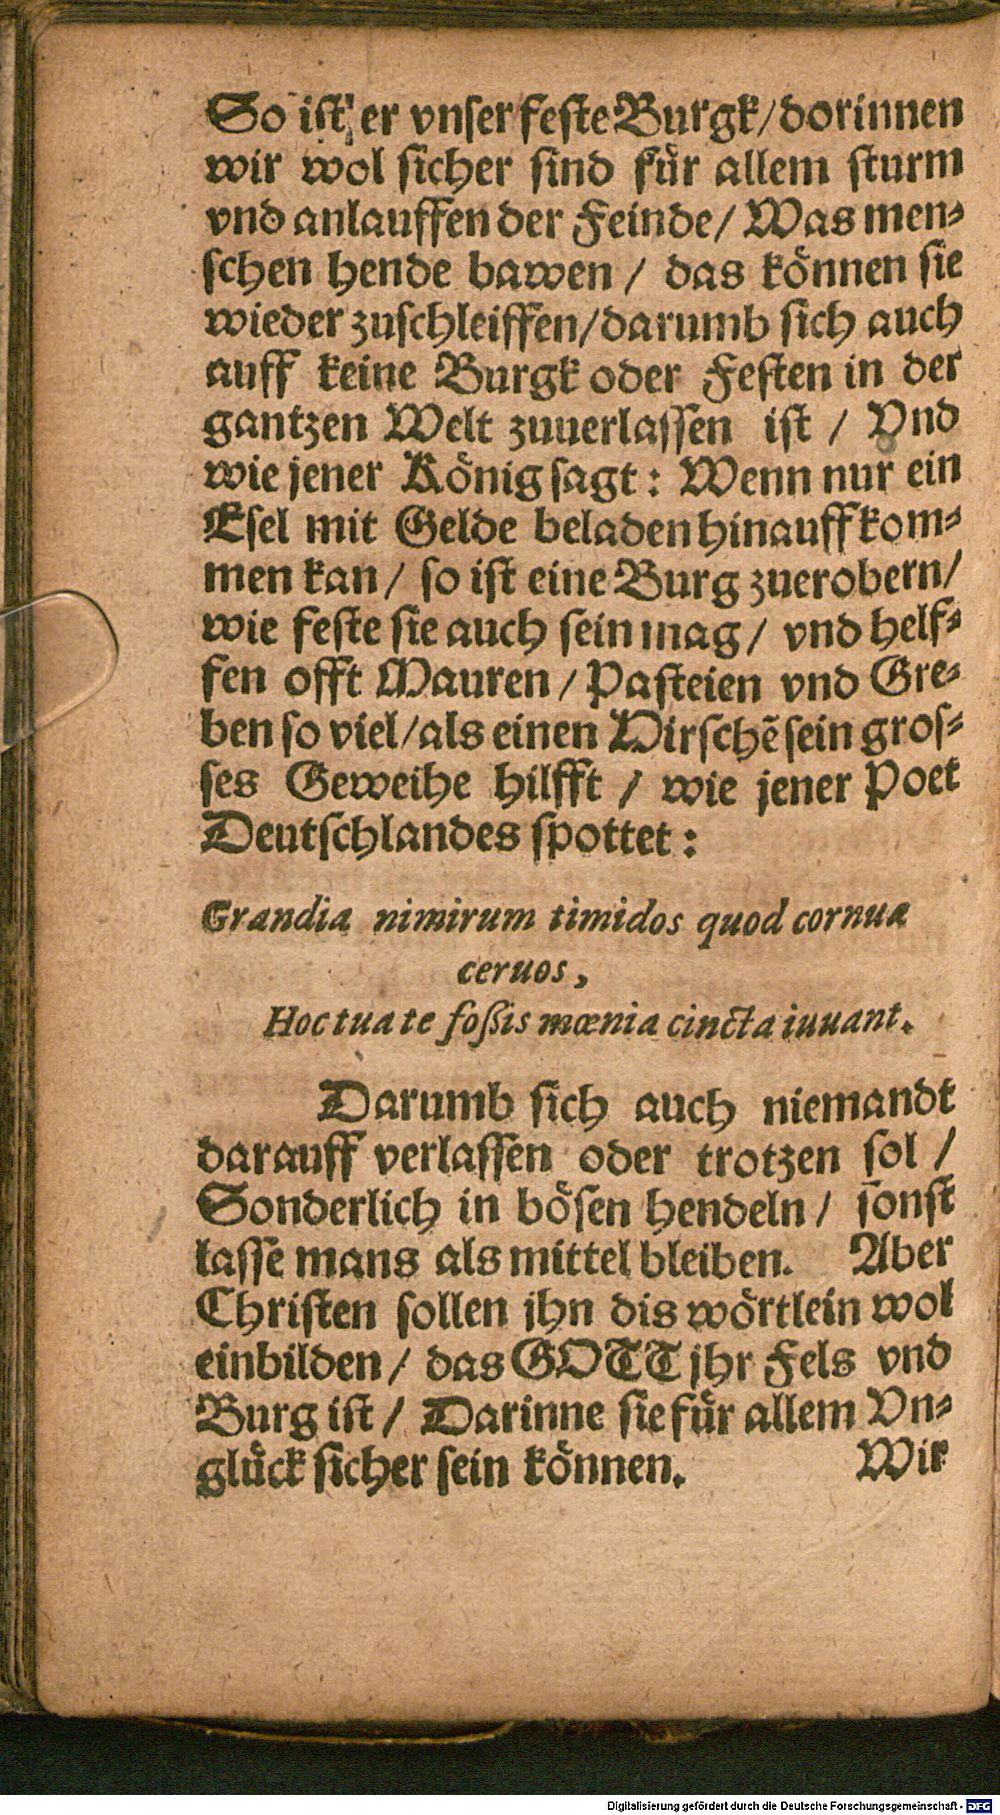 So ist er vnser feste Burgk/dorinnen
wir wol sicher sind fuͤr allem sturm
vnd anlauffen der Feinde/ Was men⸗
schen hende bawen / das koͤnnen sie
wieder zuschleiffen/darumb sich auch
auff keine Burgk oder Festen in der
gantzen Welt zuuerlassen ist / Vnd
wie jener Koͤnig sagt: Wenn nur ein
Esel mit Gelde beladen hinauff kom⸗
men kan/ so ist eine Burg zuerobern/
wie feste sie auch sein mag/ vnd helf⸗
fen offt Mauren / Pasteien vnd Gre⸗
ben so viel/als einen Hirschẽ sein gros⸗
ses Geweihe hilfft / wie jener Poet
Deutschlandes spottet:
Grandia nimirum timidos quod cornua
ceruos,
Hoc tua te foßis mœnia cincta iuuant.
Darumb sich auch niemandt
darauff verlassen oder trotzen sol /
Sonderlich in boͤsen hendeln / sonst
lasse mans als mittel bleiben. Aber
Christen sollen jhn dis woͤrtlein wol
einbilden / das GOTT jhr Fels vnd
Burg ist / Darinne sie fuͤr allem Vn⸗
gluͤck sicher sein koͤnnen. Wir
Digitalisierung gefördert durch die Deutsche Forschungsgemeinschaft - DFG